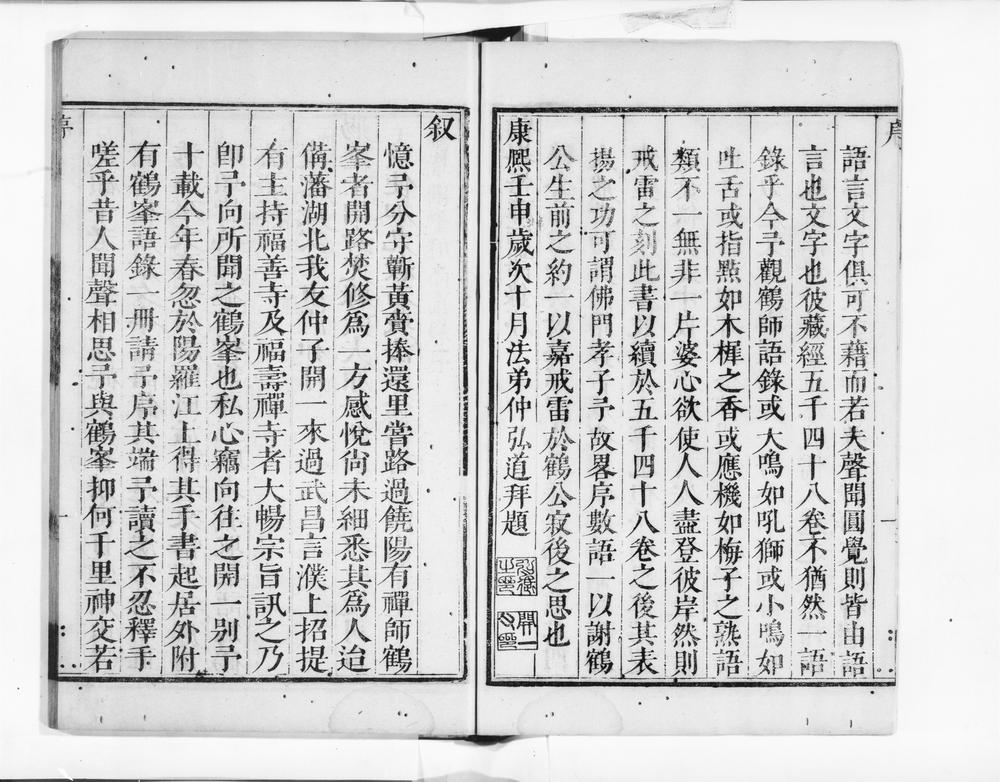 序
語言文字俱可不藉而若夫聲聞圓覺則皆由語
言也文字也彼藏經五千四十八卷不猶然一語
錄乎今予觀鶴師語錄或大鳴如吼獅或小鳴如
吐舌或指點如木樨之香或應機如梅子之熟語
類不一無非一片婆心欲使人人盡登彼岸然則
戒雷之刻此書以續於五千四十八卷之後其表
揚之功可謂佛門孝子予故畧序數語一以謝鶴
公生前之約一以嘉戒雷於鶴公寂後之思也
康熙壬申歲次十月法弟仲弘道拜題
叙
憶予分守蘄黃賫捧還里嘗路過饒陽有禪師鶴
峯者開路焚修爲一方感悅尙未細悉其爲人迨
備藩湖北我友仲子開一來過武昌言濮上招提
有主持福善寺及福壽禪寺者大暢宗旨訊之乃
卽予向所聞之鶴峯也私心竊向往之開一别予
十載今年春忽於陽羅江上得其手書起居外附
有鶴峯語錄一冊請予序其端予讀之不忍釋手
嗟乎昔人聞聲相思予與鶴峯抑何千里神交若